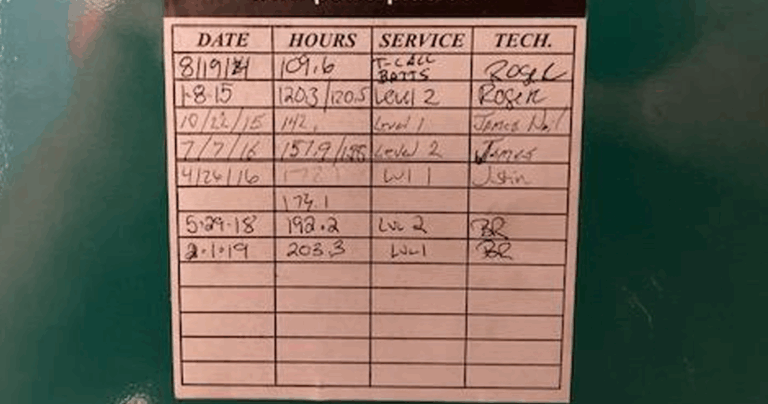 DATE HOURS SERVICE TECH.
8/19/14 109.6 T-CALL BATTS Roger
1-8-15 120.3/120.5 Level 2 Roger
10/22/15 142. Level 1 James
7/7/16 157.9/158 Level 2 James
4/26/16 172.1 Lvl 1 Justin
173.1
5-29-18 192.2 LVL 2 BR
2-1-19 203.3 LVL 1 BR